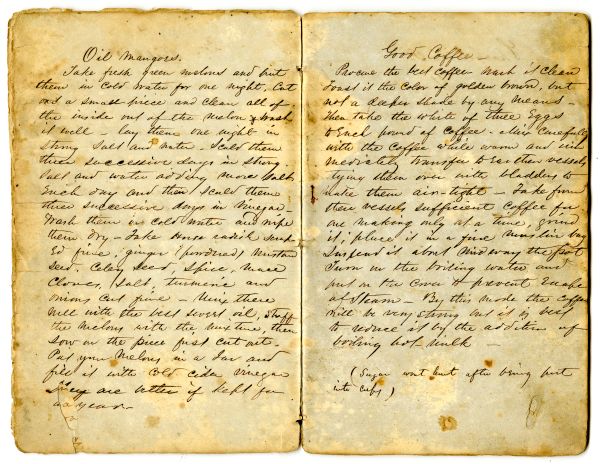 Oil Mangoes.
Take fresh green melons and put
them in cold water for one night, Cut
out a small piece and clean all of
the inside out of the melon & wash
it well - lay them one night in
strong salt and water - Scald them
three successive days in strong
salt and water adding more salt
Each day and then Scald them
three successive days in vinegar -
Wash them in cold water and wipe
them dry - Take Horse radish scrap
Ed fine, ginger (powdered) Mustard
Seed, Celery Seed, Spice, Mace
Cloves, Salt, turmeric and
onions cut fine - Mix these
well with the best sweet oil, Stuff
the melons with the mixture, then
Sow on the piece first cut out -
Put your Melons in a Jar and
fill it with Cold cider vinegar
They are better if kept for
a year -
Good Coffee -
Procure the best coffee wash it clean
Toast it the color of golden brown, but
not a deeper shade by any means -
then take the white of three Eggs
to Each pound of coffee - mix carefully
with the coffee while warm and im
mediately transfer to earthen vessels
tying them over with bladders to
make them air-tight - Take from
these vessels sufficient Coffee for
one making only at a time, grind
it; place it in a fine muslin bag
Suspend it about midway the pot
Turn in the boiling water and
put on the cover to prevent Escape
of Steam - By this mode the coffee
will be very strong but it is best
to reduce it by the addition of
boiling hot milk -
(Sugar wont hurt after being put
into cups)